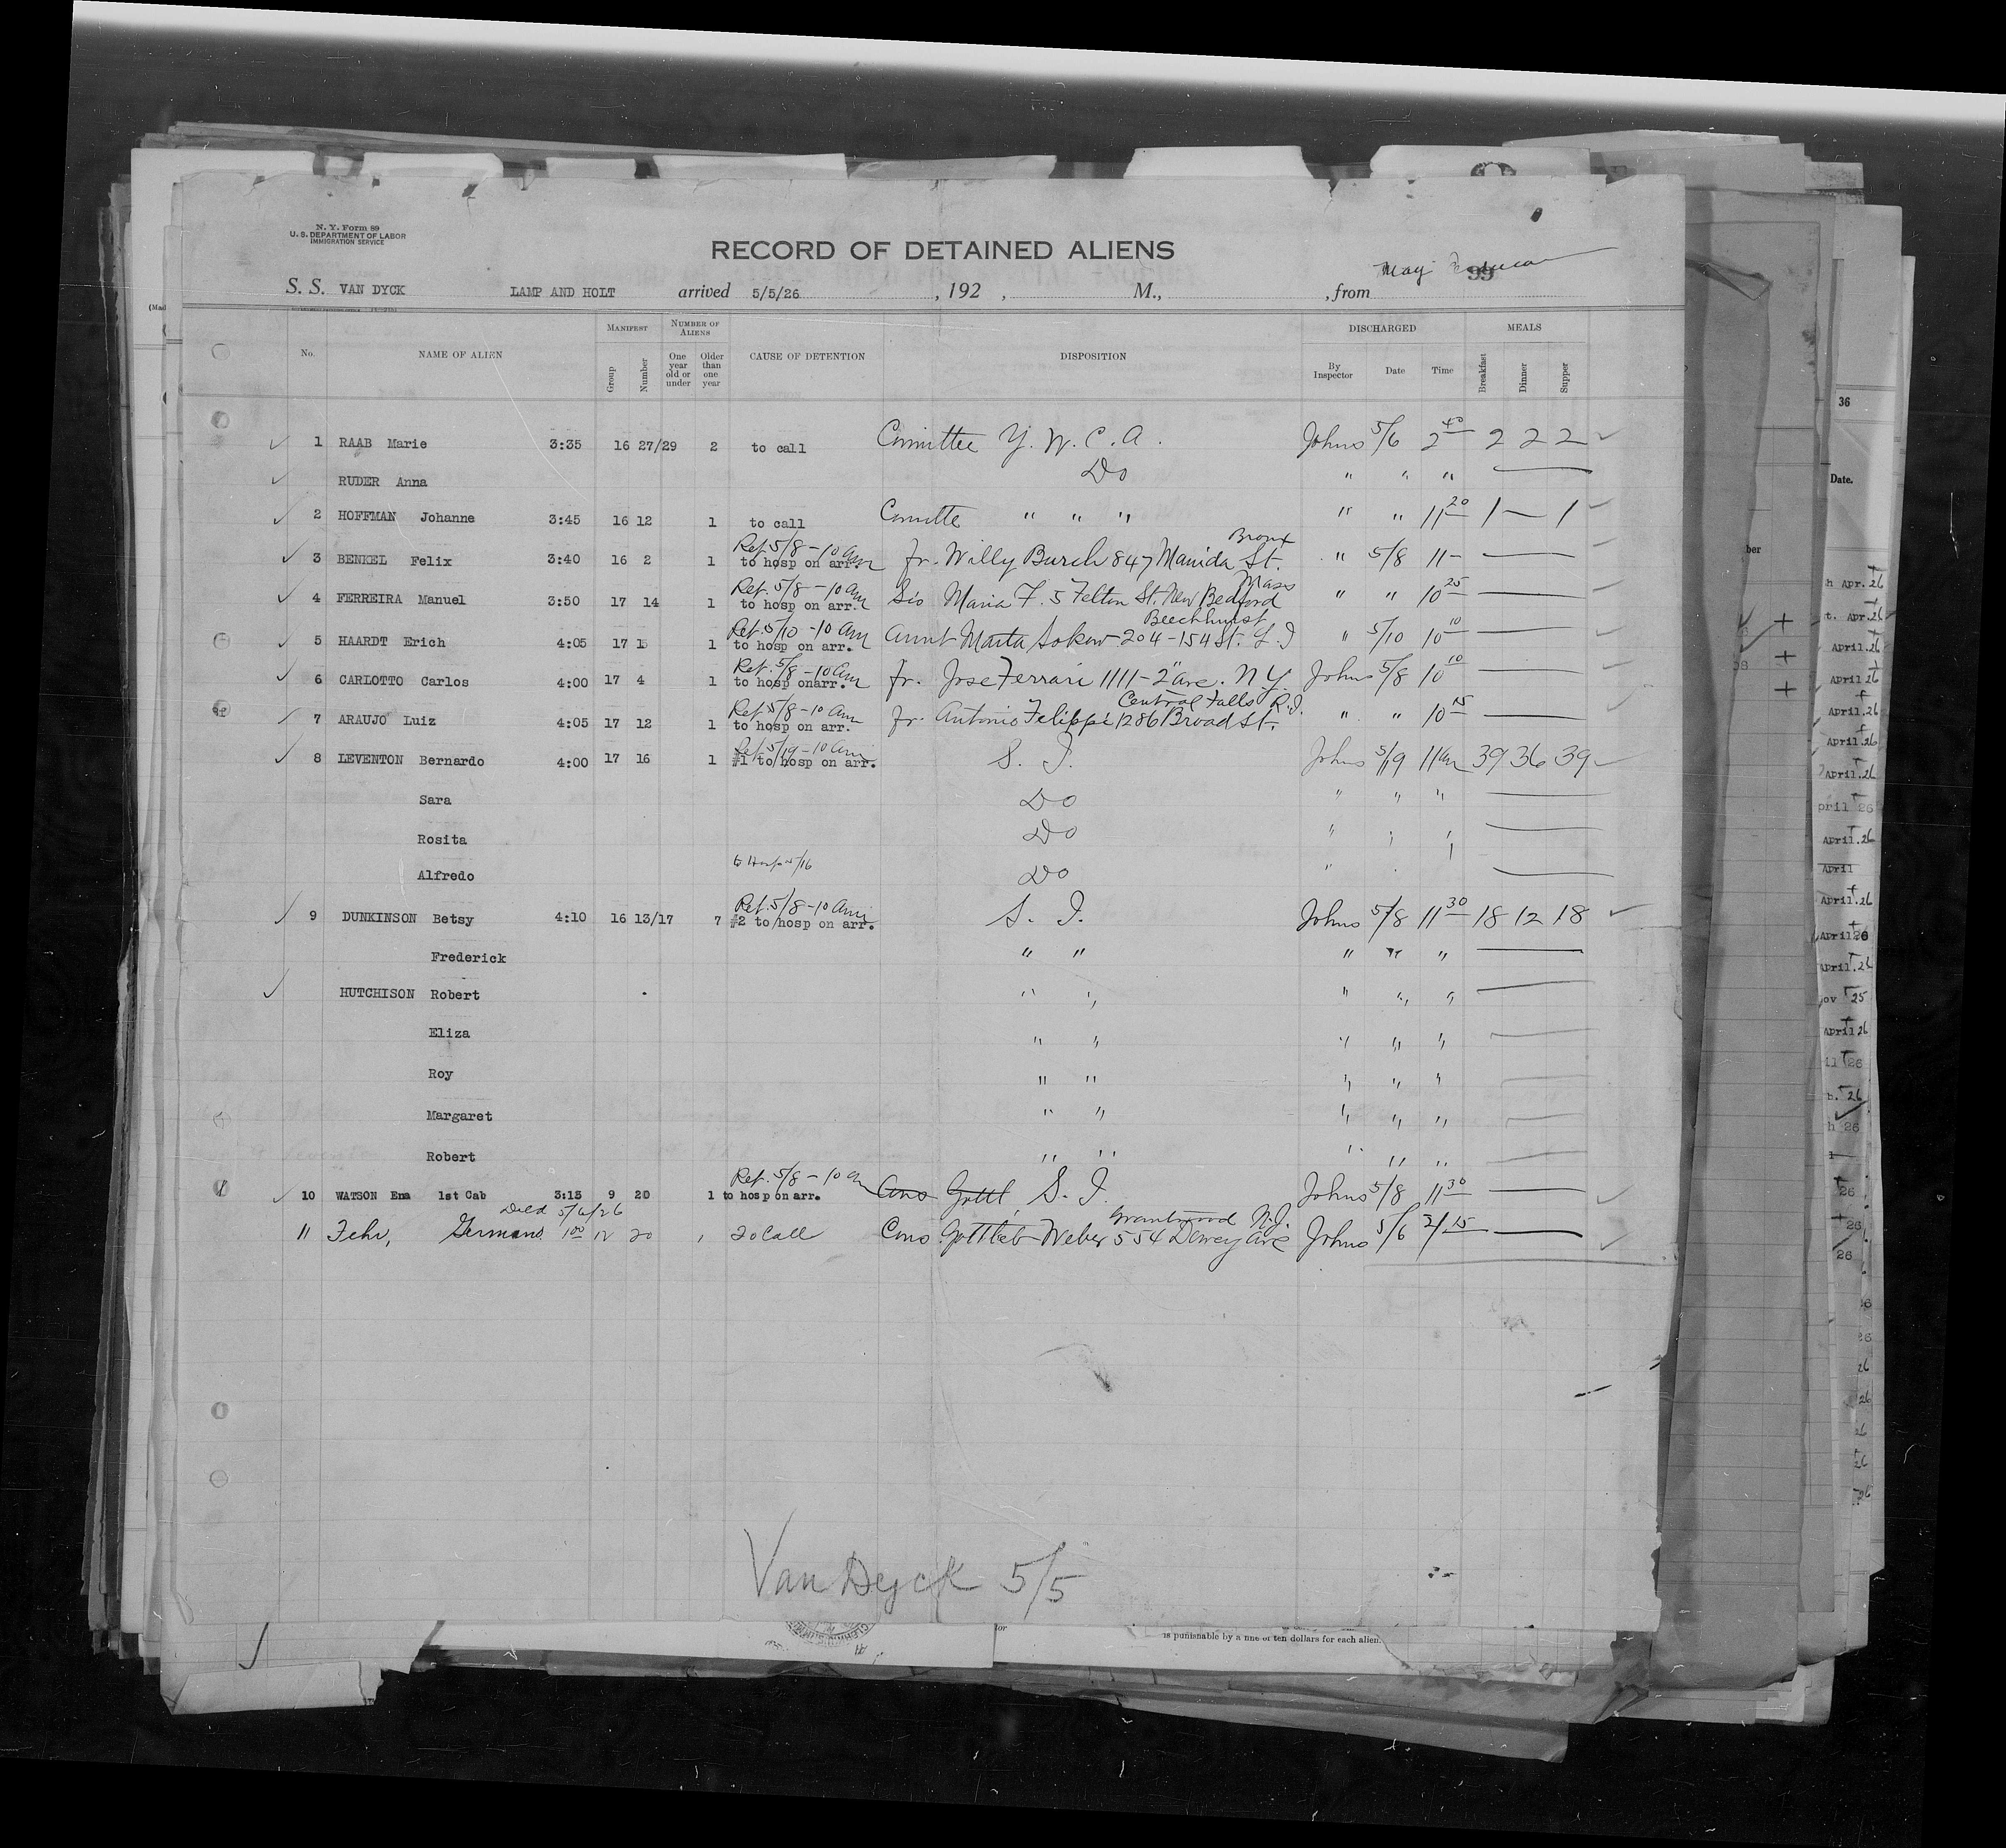 N. Y. Form 89
U. S. DEPARTMENT OF LABOR
IMMIGRATION SERVICE
RECORD OF DETAINED ALIENS
99
S. S. VAN DYCK LAMP AND HOLT arrived 5/5/26, 192 , M., , from
No. NAME OF ALIEN MANIFEST Group Number NUMBER OF ALIENS One year old or under Older than one year CAUSE OF DETENTION DISPOSITION DISCHARGED By Inspector Date Time MEALS Breakfast Dinner Supper
1 RAAB Marie 3:35 16 27/29 2 to call Committee Y. W. C. A. Johns 5/6 2 40 2 2 2
RUDER Anna Do " " "
2 HOFFMAN Johanne 3:45 16 12 1 to call Committe " " " " " 11 20 1 — 1
Ret. 5/8 – 10 am Bronx
3 BENKEL Felix 3:40 16 2 1 to hosp on arr. fr. Willy Burch 847 Manida St. " 5/8 11 –
Ret. 5/8 – 10 am Mass
4 FERREIRA Manuel 3:50 17 14 1 to hosp on arr. Sis Maria F. 5 Felton St. New Bedford " " 10 25
Ret. 5/10 – 10 am Beechhurst
5 HAARDT Erich 4:05 17 1 to hosp on arr. Aunt Marta Sokow 204 – 154 St. L. I " 5/10 10 10
Ret. 5/8 – 10 am
6 CARLOTTO Carlos 4:00 17 4 1 to hosp onarr. fr. Jose Ferrari 1111 – 2" ave. N Y. Johns 5/8 10 10
Ret. 5/8 – 10 am Central Falls R.I.
7 ARAUJO Luiz 4:05 17 12 1 to hosp on arr. fr. Antonio Felippi 1286 Broad St. " " 10 15
Ret. 5/19 – 10 am
8 LEVENTON Bernardo 4:00 17 16 1 #1 to hosp on arr. S. I. Johns 5/19 11 am 39 36 39
Sara Do " " "
Rosita Do "
to Hosp 5/16
Alfredo Do "
Ret. 5/8 – 10 am
9 DUNKINSON Betsy 4:10 16 13/17 7 #2 to hosp on arr. S. I. Johns 5/8 11 30 18 12 18
Frederick " " " " "
HUTCHISON Robert " " " " "
Eliza " " " " "
Roy " " " " "
Margaret " " " " "
Robert " " " " "
Ret. 5/8 – 10 am
10 WATSON Ema 1st Cab 3:15 9 20 1 to hosp on arr. S. I. Johns 5/8 11 30
Deld 5/6/26 Grantwood N.J.
11 Fehr, Germano 1 00 12 20 1 To Call Cous. Gottlieb Weber 554 Dewey Ave Johns 5/6 2/15
Van Dyck 5/5
is punishable by a fine of ten dollars for each alien.
36
Date.